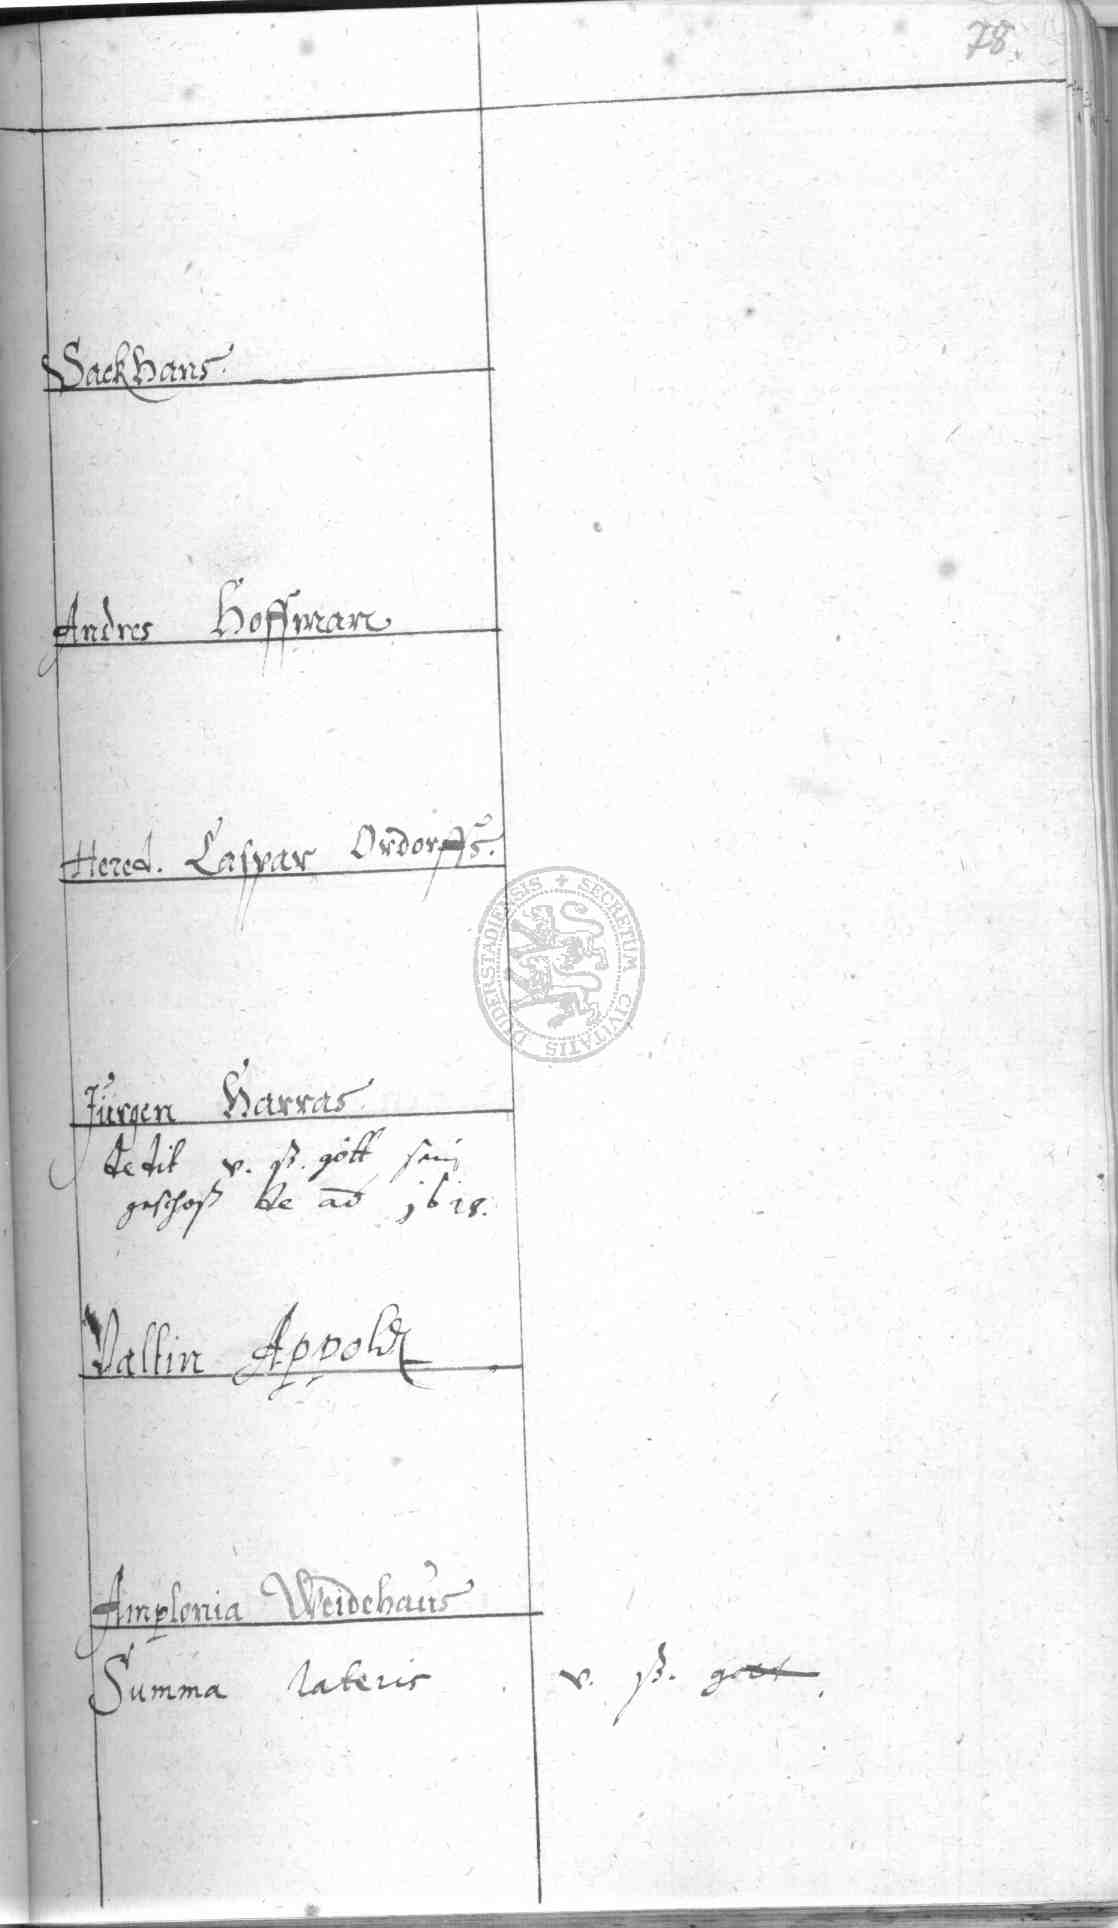 78.
Sack Hans.
Andres Hoffman
Hered. Caspar Ordorffs.
Jürgen Harras.
dedit v. ß. gött sein
geschoß de ao 1618.
Valtin Appoldt
Amplonia Weidehaus
Summa lateris v. ß. gott
SECRETUM CIVITATIS DUDERSTADIENSIS